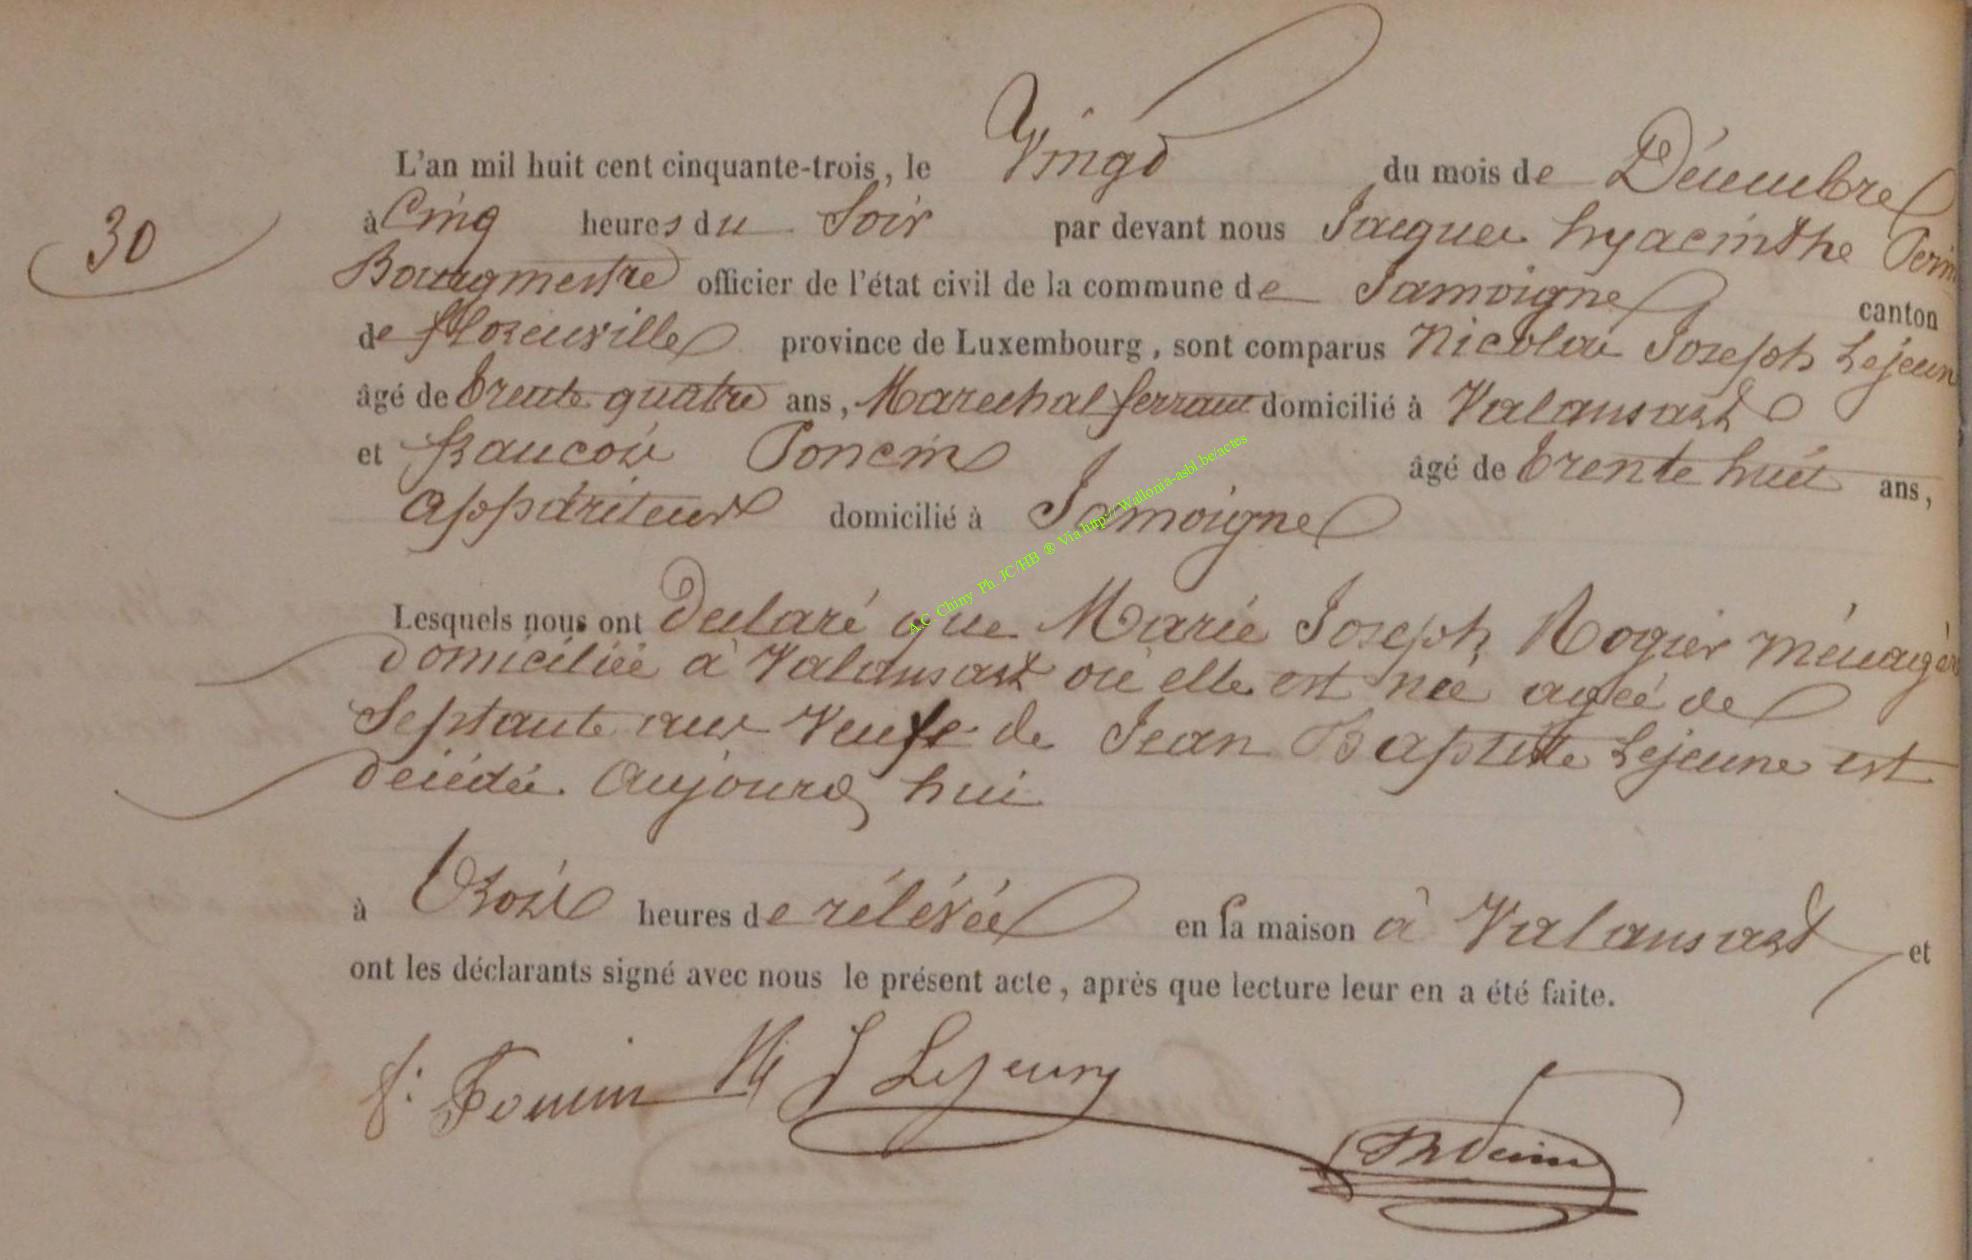 L'an mil huit cent cinquante-trois, le Vingt du mois de Décembre
30
à Cinq heures du Soir par devant nous Jacques hyacinthe
Bourgmestre officier de l'état civil de la commune de Jamoigne canton
de florenville province de Luxembourg, sont comparus Nicolas Joseph Lejeun
âgé de trente quatre ans, Marechal ferrant domicilié à Valansart
et francois Poncin âgé de trente huit ans,
appariteur domicilié à Jamoigne
A.C Chiny Ph. JC/HB ® Via http://Wallonia-asbl.be/actes
Lesquels nous ont Déclaré que Marie Joseph Rogier ménagèr
domiciliée à Valansart où elle est née agée de
Septante ans Veufe de Jean Baptiste Lejeune est
décédée Aujourd hui
à trois heures de rélévée en sa maison à Valansart et
ont les déclarants signé avec nous le présent acte, après que lecture leur en a été faite.
f: Poncin N J Lejeune